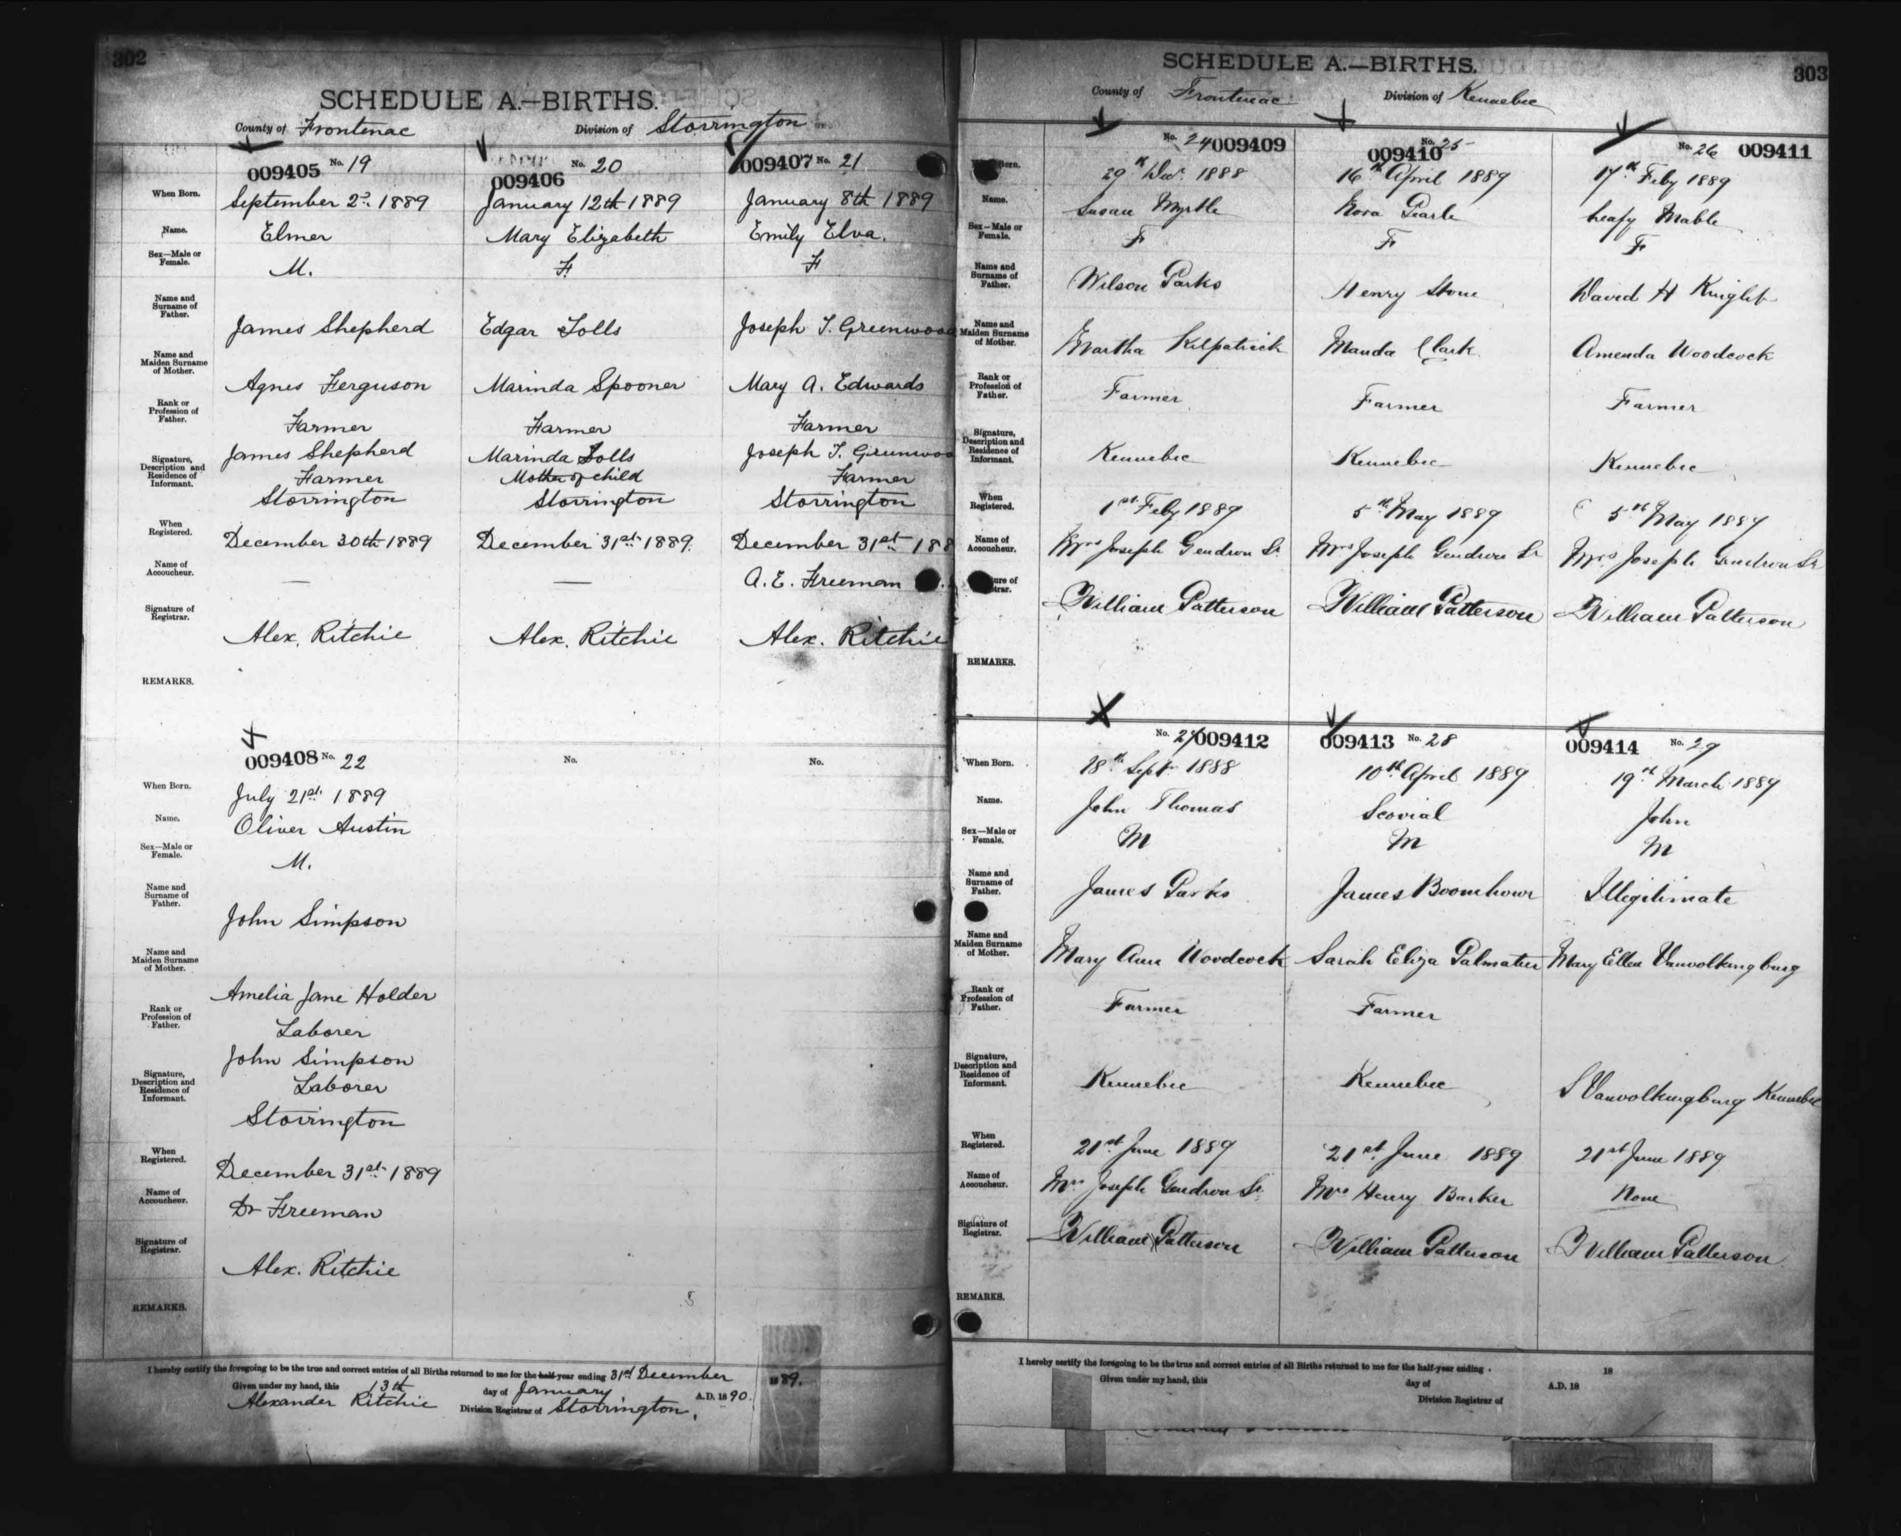 302
SCHEDULE A.—BIRTHS.
County of Frontenac Division of Storrington
009405 No. 19 009406 No. 20 009407 No. 21
When Born. September 2nd 1889 January 12th 1889 January 8th 1889
Name. Elmer Mary Elizabeth Emily Elva.
Sex—Male or Female. M. F F
Name and Surname of Father. James Shepherd Edgar Tolls Joseph T. Greenwood
Name and Maiden Surname of Mother. Agnes Ferguson Marinda Spooner Mary A. Edwards
Rank or Profession of Father. Farmer Farmer Farmer
Signature, Description and Residence of Informant. James Shepherd Marinda Tolls Joseph T. Greenwoo
Farmer Mother of child Farmer
Storrington Storrington Storrington
When Registered. December 30th 1889 December 31st 1889. December 31st 188
Name of Accoucheur. — — A. E. Freeman
Signature of Registrar. Alex. Ritchie Alex. Ritchie Alex. Ritchie
REMARKS.
009408 No. 22 No. No.
When Born. July 21st 1889
Name. Oliver Austin
Sex—Male or Female. M.
Name and Surname of Father. John Simpson
Name and Maiden Surname of Mother. Amelia Jane Holder
Rank or Profession of Father. Laborer
Signature, Description and Residence of Informant. John Simpson
Laborer
Storrington
When Registered. December 31st 1889
Name of Accoucheur. Dr Freeman
Signature of Registrar. Alex. Ritchie
REMARKS.
I hereby certify the foregoing to be the true and correct entries of all Births returned to me for the half-year ending 31st December 1889.
Given under my hand, this 13th day of January A.D. 1890.
Alexander Ritchie Division Registrar of Storrington.
303
SCHEDULE A.—BIRTHS.
County of Frontenac Division of Kennebec
No. 24 009409 009410 No. 25 No. 26 009411
Born. 29th Dec. 1888 16th April 1889 17th Feby 1889
Name. Susan Myrtle Nora Pearle Leafy Mable
Sex—Male or Female. F F F
Name and Surname of Father. Wilson Parks Henry Stone David H Knight
Name and Maiden Surname of Mother. Martha Kilpatrick Manda Clark Amenda Woodcock
Rank or Profession of Father. Farmer Farmer Farmer
Signature, Description and Residence of Informant. Kennebec Kennebec Kennebec
When Registered. 1st Feby 1889 5th May 1889 5th May 1889
Name of Accoucheur. Mrs Joseph Gendron Sr Mrs Joseph Gendron Sr Mrs Joseph Gendron Sr
William Patterson William Patterson William Patterson
REMARKS.
No. 27 009412 009413 No. 28 009414 No. 29
When Born. 18th Sept 1888 10th April 1889 19th March 1889
Name. John Thomas Scovial John
Sex—Male or Female. M M M
Name and Surname of Father. James Parks James Boomhour Illegitimate
Name and Maiden Surname of Mother. Mary Ann Woodcock Sarah Eliza Palmatier Mary Ellen Vanvolkingburg
Rank or Profession of Father. Farmer Farmer
Signature, Description and Residence of Informant. Kennebec Kennebec S Vanvolkingburg Kennebec
When Registered. 21st June 1889 21st June 1889 21st June 1889
Name of Accoucheur. Mrs Joseph Gendron Sr. Mrs Henry Barker None
Signature of Registrar. William Patterson William Patterson William Patterson
REMARKS.
I hereby certify the foregoing to be the true and correct entries of all Births returned to me for the half-year ending 18
Given under my hand, this day of A.D. 18
Division Registrar of